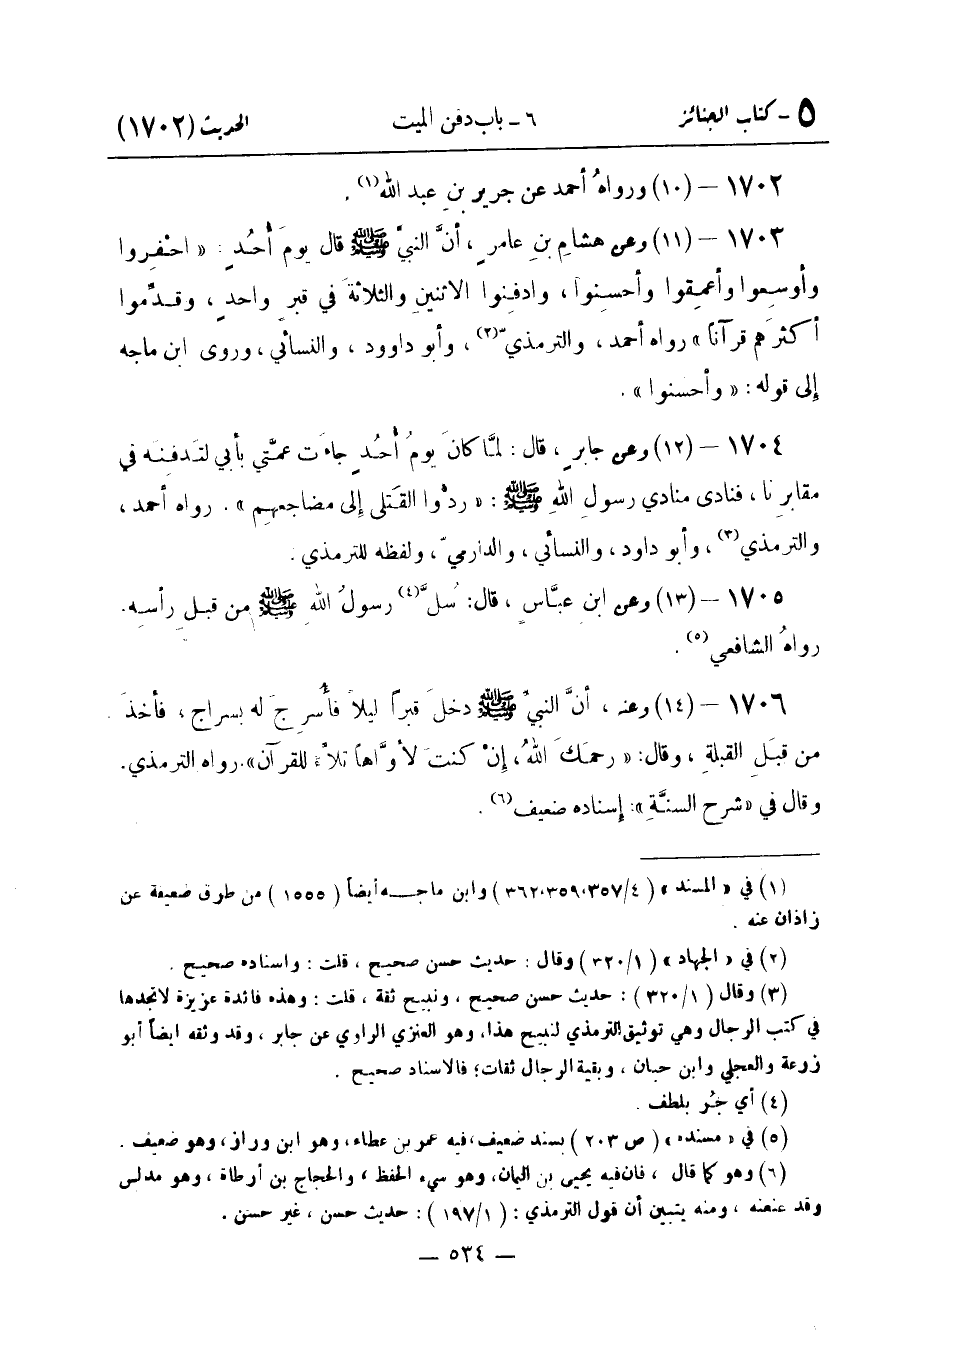 ٥ - كتاب الجنائز ٦ - باب دفن الميت الحديث (١٧٠٢)
١٧٠٢ – (١٠) ورواهُ أحمد عن جريرِ بنِ عبد الله(١) .
١٧٠٣ – (١١) وعن هشامِ بنِ عامرٍ ، أنَّ النبيَّ ﷺ قال يومَ أُحُدٍ : « احفِروا
وأوسِعوا وأعمِقوا وأحسِنوا ، وادفِنوا الاثنينِ والثلاثةَ في قبرٍ واحدٍ ، وقدِّموا
أكثرَهم قرآناً » رواه أحمد ، والترمذيّ(٢) ، وأبو داوود ، والنسائي ، وروى ابن ماجه
إلى قوله : « وأحسنوا » .
١٧٠٤ – (١٢) وعن جابرٍ ، قال : لمَّا كانَ يومُ أُحُدٍ جاءَت عمَّتي بأبي لتَدفِنَه في
مقابرِنا ، فنادى منادي رسولِ اللهِ ﷺ : « ردُّوا القَتلى إلى مضاجعِهم » . رواه أحمد ،
والترمذي(٣) ، وأبو داود ، والنسائي ، والدارميّ ، ولفظه للترمذي .
١٧٠٥ – (١٣) وعن ابنِ عبَّاسٍ ، قال : سُلَّ(٤) رسولُ اللهِ ﷺ من قبلِ رأسِه .
رواهُ الشافعي(٥) .
١٧٠٦ – (١٤) وعنه ، أنَّ النبيَّ ﷺ دخلَ قبراً ليلاً فأُسرِجَ له بسراجٍ ، فأخذَ
من قبَلِ القبلةِ ، وقال : « رحمَكَ اللهُ ، إنْ كنتَ لأوَّاهاً تلاَّءً للقرآن » . رواه الترمذي .
وقال في «شرح السنَّةِ » : إسناده ضعيف(٦) .
(١) في « المسند » ( ٤/٣٥٧،٣٥٩،٣٦٢ ) وابن ماجـــه أيضاً ( ١٥٥٥ ) من طرق ضعيفة عن
زاذان عنه .
(٢) في « الجهاد » ( ١/٣٢٠ ) وقال : حديث حسن صحيح ، قلت : واسناده صحيح .
(٣) وقال ( ١/٣٢٠ ) : حديث حسن صحيح ، ونبيح ثقة ، قلت : وهذه فائدة عزيزة لا تجدها
في كتب الرجال وهي توثيق الترمذي لنبيح هذا، وهو العنزي الراوي عن جابر ، وقد وثقه ايضاً أبو
زوعة والعجلي وابن حبان ، وبقية الرجال ثقات؛ فالاسناد صحيح .
(٤) أي جُر بلطف .
(٥) في « مسنده » ( ص ٢٠٣ ) بسند ضعيف، فيه عمر بن عطاء، وهو ابن وراز ، وهو ضعيف .
(٦) وهو كما قال ، فان فيه يحيى بن اليمان، وهو سيء الحفظ ، والحجاج بن أرطاة ، وهو مدلس
وقد عنعنه ، ومنه يتبين أن قول الترمذي : ( ١/١٩٧ ) : حديث حسن ، غير حسن .
— ٥٣٤ —